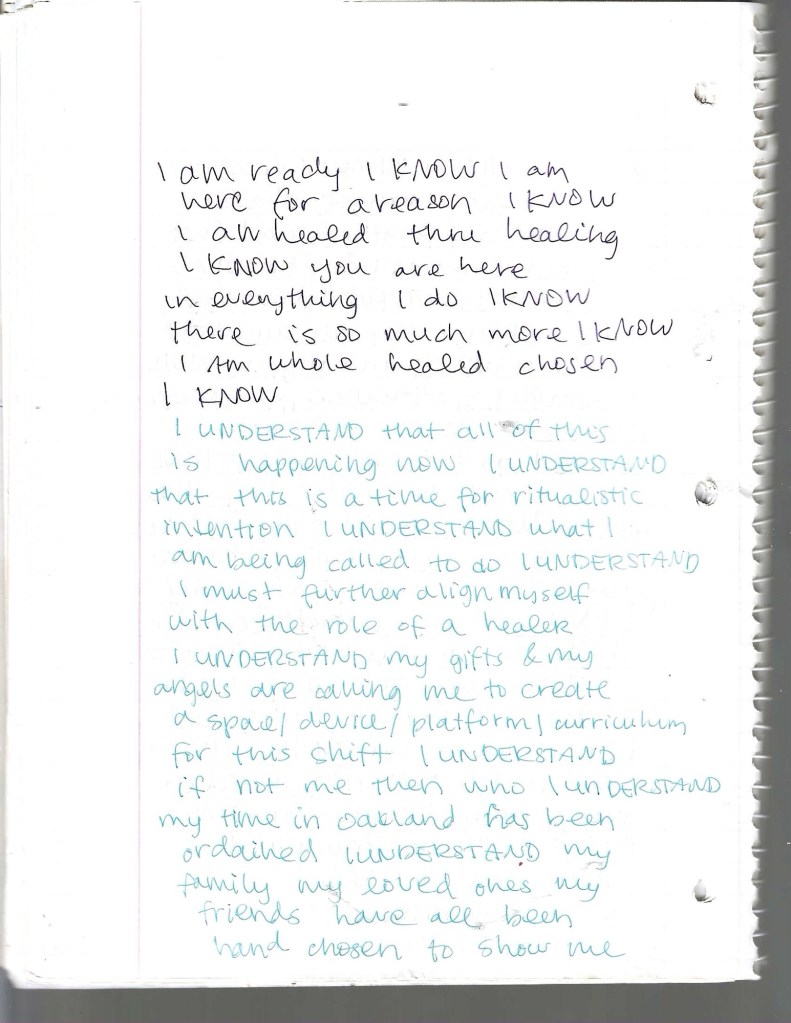 I am ready I KNOW I am
here for a reason I KNOW
I am healed thru healing
I KNOW you are here
in everything I do I KNOW
there is so much more I KNOW
I Am whole healed chosen
I KNOW
I UNDERSTAND that all of this
is happening now I UNDERSTAND
that this is a time for ritualistic
intention I UNDERSTAND what I
am being called to do I UNDERSTAND
I must further align myself
with the role of a healer
I UNDERSTAND my gifts & my
angels are calling me to create
a space/ device/ platform/ curriculum
for this shift I UNDERSTAND
if not me then who I unDERSTAND
my time in oakland has been
ordained I UNDERSTAND my
family my loved ones my
friends have all been
hand chosen to show me